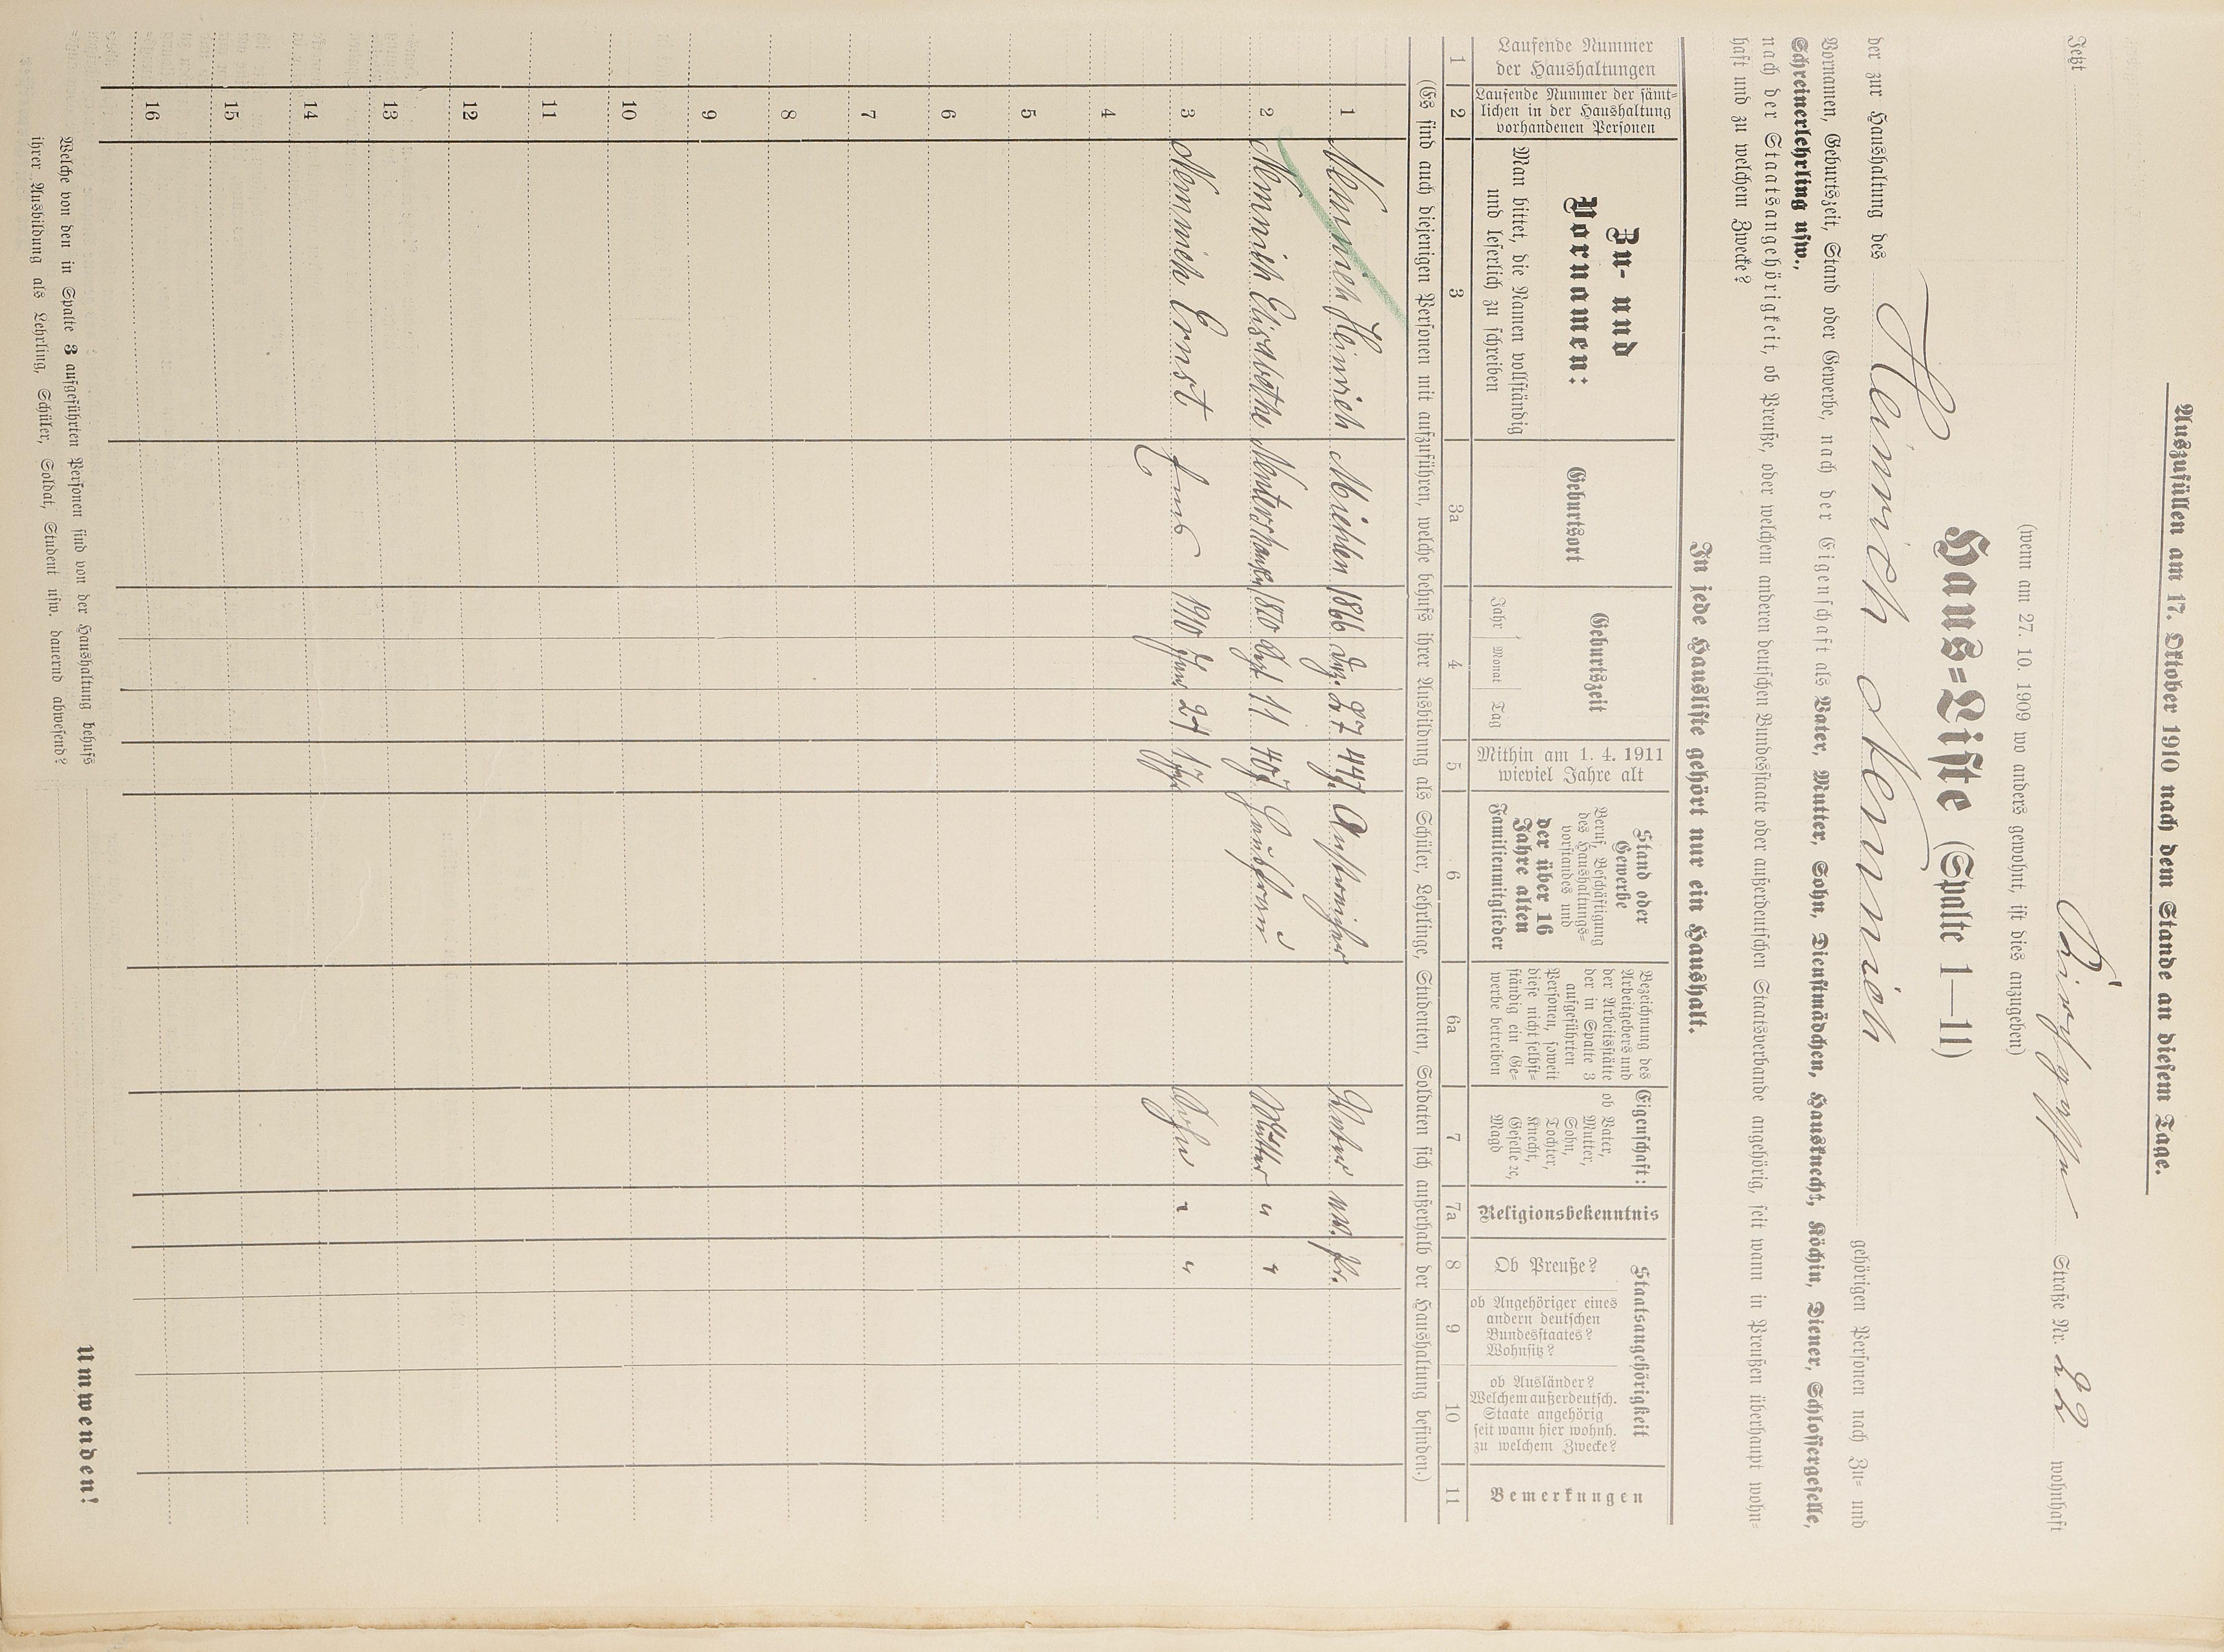 Auszufüllen am 17. Oktober 1910 nach dem Stande an diesem Tage.
Jetzt Straße Nr. 22 wohnhaft
(wenn am 27. 10. 1909 wo anders gewohnt, ist dies anzugeben)
Haus=Liste (Spalte 1—11)
der zur Haushaltung des Heinrich Nennich gehörigen Personen nach Zu= und
Vornamen, Geburtszeit, Stand oder Gewerbe, nach der Eigenschaft als Vater, Mutter, Sohn, Dienstmädchen, Hausknecht, Köchin, Diener, Schlossergeselle,
Schreinerlehrling usw.,
nach der Staatsangehörigkeit, ob Preuße, oder welchen anderen deutschen Bundesstaate oder außerdeutschen Staatsverbande angehörig, seit wann in Preußen überhaupt wohn=
haft und zu welchem Zwecke?
In jede Hausliste gehört nur ein Haushalt.
Laufende Nummer
der Haushaltungen
Laufende Nummer der sämt=
lichen in der Haushaltung
vorhandenen Personen
Zu- und
Vornamen:
Man bittet, die Namen vollständig
und leserlich zu schreiben
Geburtsort
Geburtszeit
Jahr Monat Tag
Mithin am 1. 4. 1911
wieviel Jahre alt
Stand oder
Gewerbe
Beruf, Beschäftigung
des Haushaltungs=
vorstandes und
der über 16
Jahre alten
Familienmitglieder
Bezeichnung des
Arbeitgebers und
der Arbeitsstätte
der in Spalte 3
aufgeführten
Personen, soweit
diese nicht selbst=
ständig ein Ge=
werbe betreiben
Eigenschaft:
ob Vater,
Mutter,
Sohn,
Tochter,
Knecht,
Geselle ec,
Magd
Religionsbekenntnis
Staatsangehörigkeit
Ob Preuße?
ob Angehöriger eines
andern deutschen
Bundesstaates?
Wohnsitz?
ob Ausländer?
Welchem außerdeutsch.
Staate angehörig
seit wann hier wohnh.
zu welchem Zwecke?
Bemerkungen
1 2 3 3a 4 5 6 6a 7 7a 8 9 10 11
(Es sind auch diejenigen Personen mit aufzuführen, welche behufs ihrer Ausbildung als Schüler, Lehrlinge, Studenten, Soldaten sich außerhalb der Haushaltung befinden.)
1 Nennich Heinrich Miehlen 1866 Dez. 27 44 J. Anstreicher Vater ev. Pr.
2 Nennich Elisabethe 1870 Sept 11 40 J Hausfrau Mutter " "
3 Nennich Ernst Ems 1910 Juni 24 Sohn " "
4
5
6
7
8
9
10
11
12
13
14
15
16
Welche von den in Spalte 3 aufgeführten Personen sind von der Haushaltung behufs
ihrer Ausbildung als Lehrling, Schüler, Soldat, Student usw. dauernd abwesend?
Umwenden!